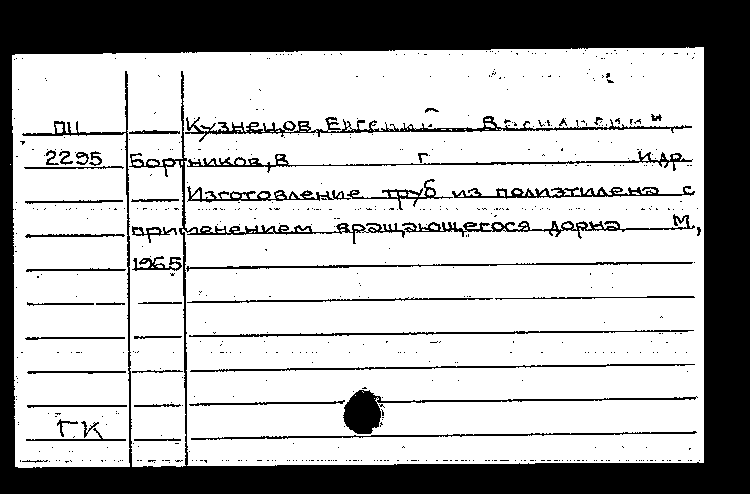 ПН Кузнецов, Евгений Васильевич,
2295 Бортников, В Г И ДР
Изготовление труб из полиэтилена с
применением вращающегося дорна М,
1965.
ГК